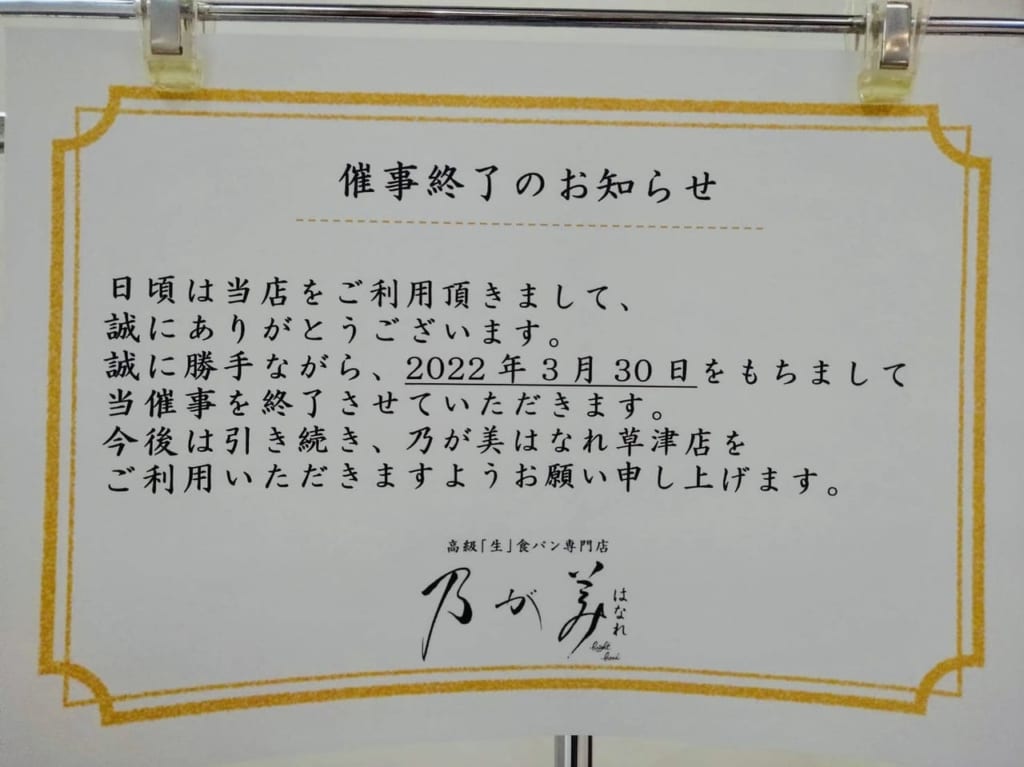 催事終了のお知らせ
日頃は当店をご利用頂きまして、
誠にありがとうございます。
誠に勝手ながら、2022年3月30日をもちまして
当催事を終了させていただきます。
今後は引き続き、乃が美はなれ草津店を
ご利用いただきますようお願い申し上げます。
高級「生」食パン専門店
乃が美
はなれ